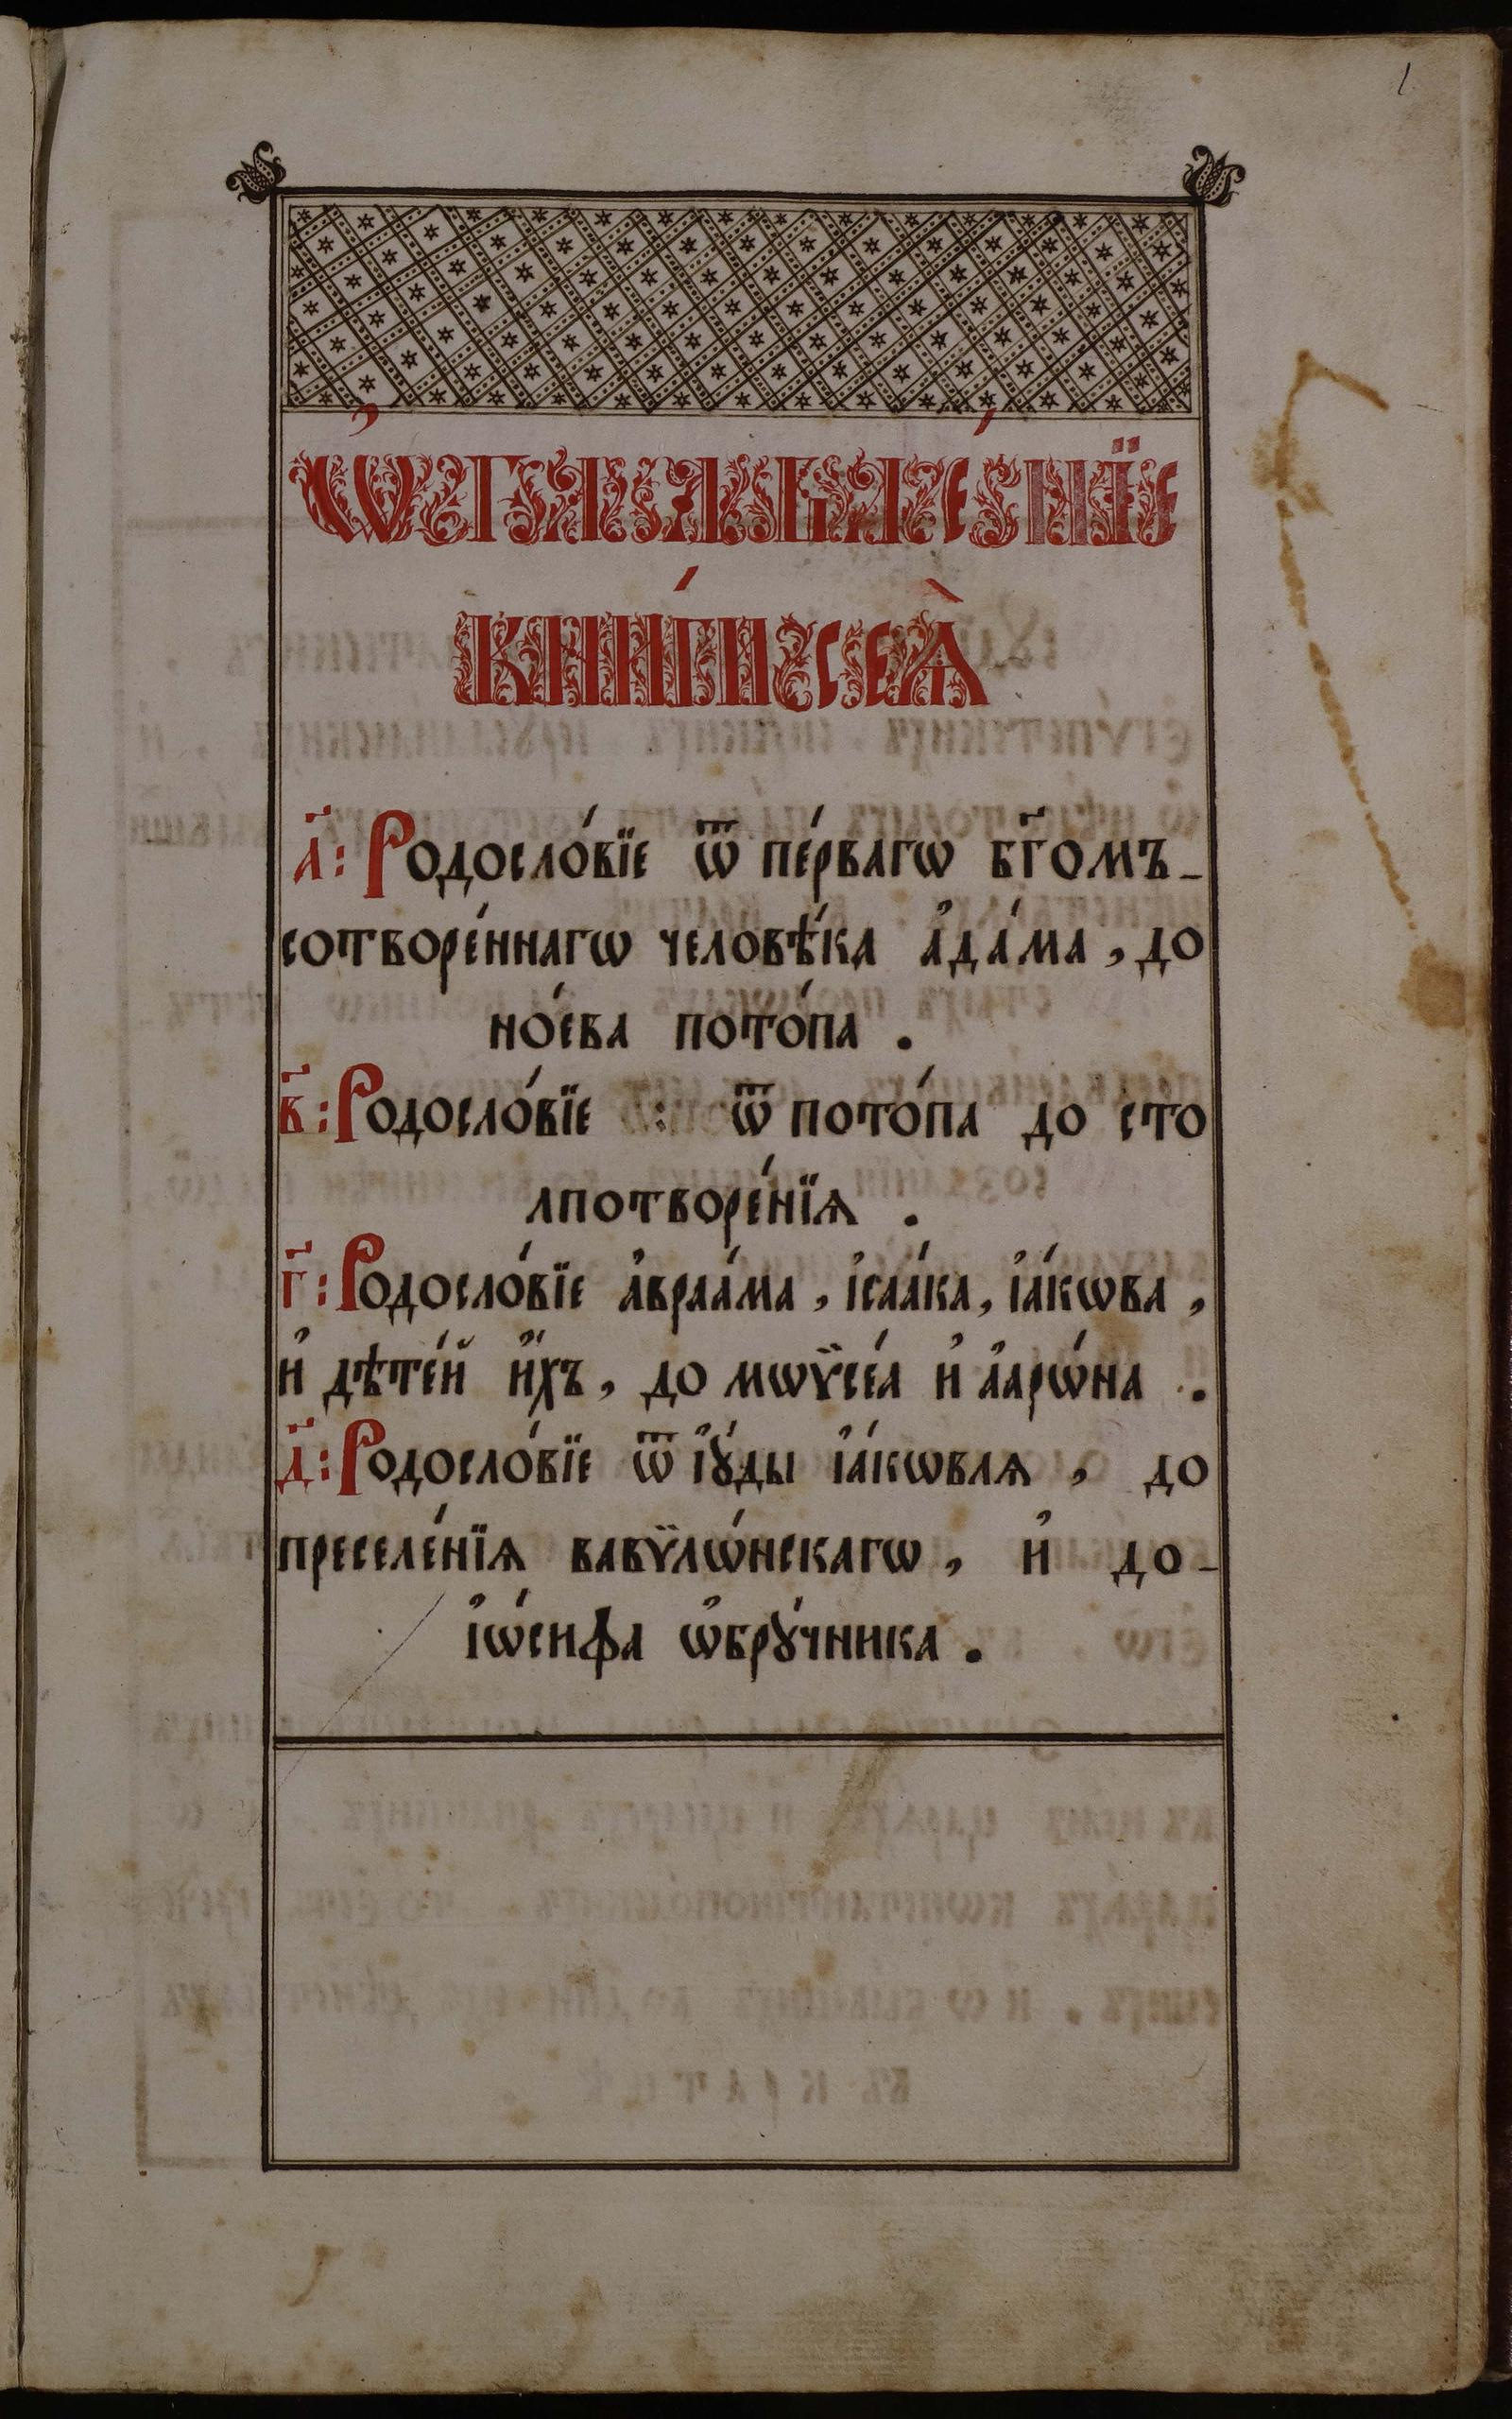 1
Ѡ҆ГЛАВЛЕ́НЇЕ
КНИ́ГИ СЕѦ̀
а҃: Родосло́вїе ѿ пе́рвагѡ бг҃омъ-
сотворе́ннагѡ человѣ́ка а҆да́ма, до
но́ева пото́па .
в҃: Родосло́вїе : ѿ пото́па до сто
лпотворе́нїѧ .
г҃: Родосло́вїе а҆враа́ма, і҆саа́ка, і҆а́кѡва,
и҆ дѣте́й и҆́хъ, до мѡѷсе́а и҆ а҆арѡ́на .
д҃: Родосло́вїе ѿ і҆ꙋ́ды і҆а́кѡвлѧ, до
преселе́нїѧ вавѷлѡ́нскагѡ, и҆ до-
і҆ѡ́сифа ѡ҆брꙋ́чника .